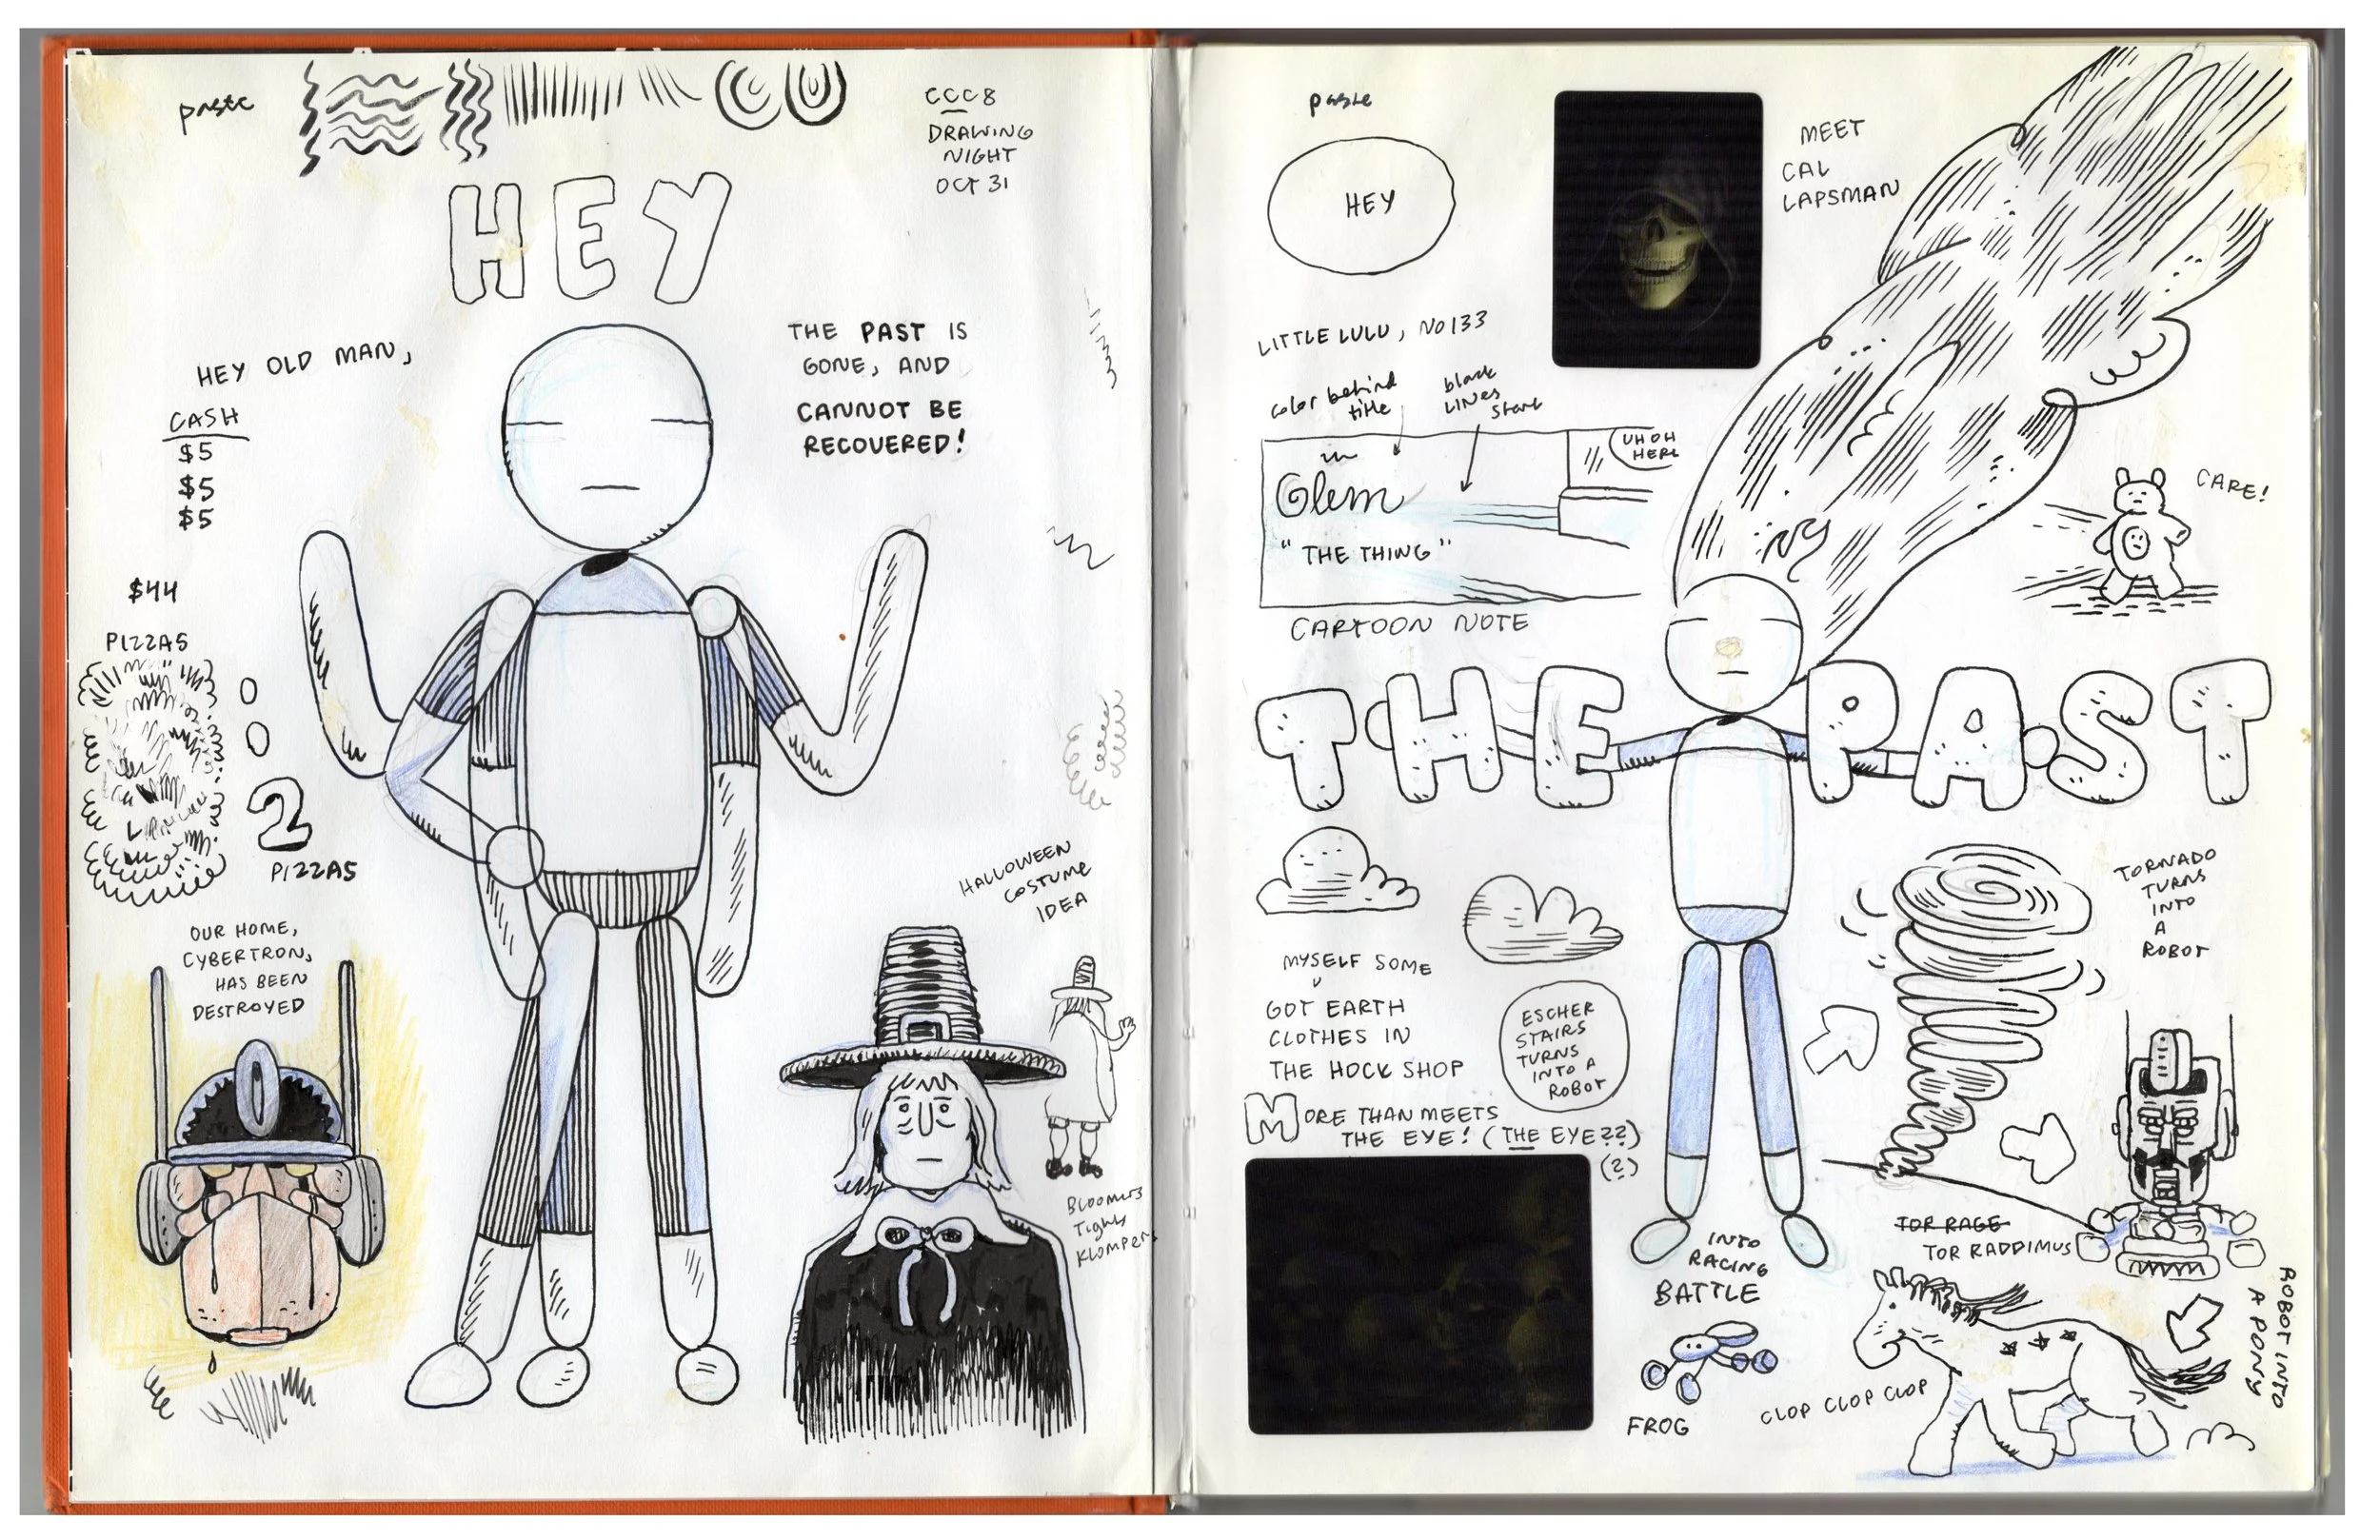 paste
CCC8
DRAWING
NIGHT
OCT 31
HEY
HEY OLD MAN,
THE PAST IS
GONE, AND
CANNOT BE
RECOVERED!
CASH
$5
$5
$5
$44
PIZZAS
2
PIZZAS
OUR HOME,
CYBERTRON,
HAS BEEN
DESTROYED
HALLOWEEN
COSTUME
IDEA
BLOOMERS
TIGHTS
KLOMPERS
paste
HEY
MEET
CAL
LAPSMAN
LITTLE LULU, NO 133
color behind
title
black
LINES
start
UH OH
HERE
in
Glem
"THE THING"
CARTOON NOTE
CARE!
NY
THE PAST
MYSELF SOME
GOT EARTH
CLOTHES IN
THE HOCK SHOP
ESCHER
STAIRS
TURNS
INTO A
ROBOT
MORE THAN MEETS
THE EYE! (THE EYE??)
(?)
TORNADO
TURNS
INTO
A
ROBOT
TOR RAGE
TOR RADDIMUS
INTO
RACING
BATTLE
FROG
CLOP CLOP CLOP
ROBOT INTO
A PONY